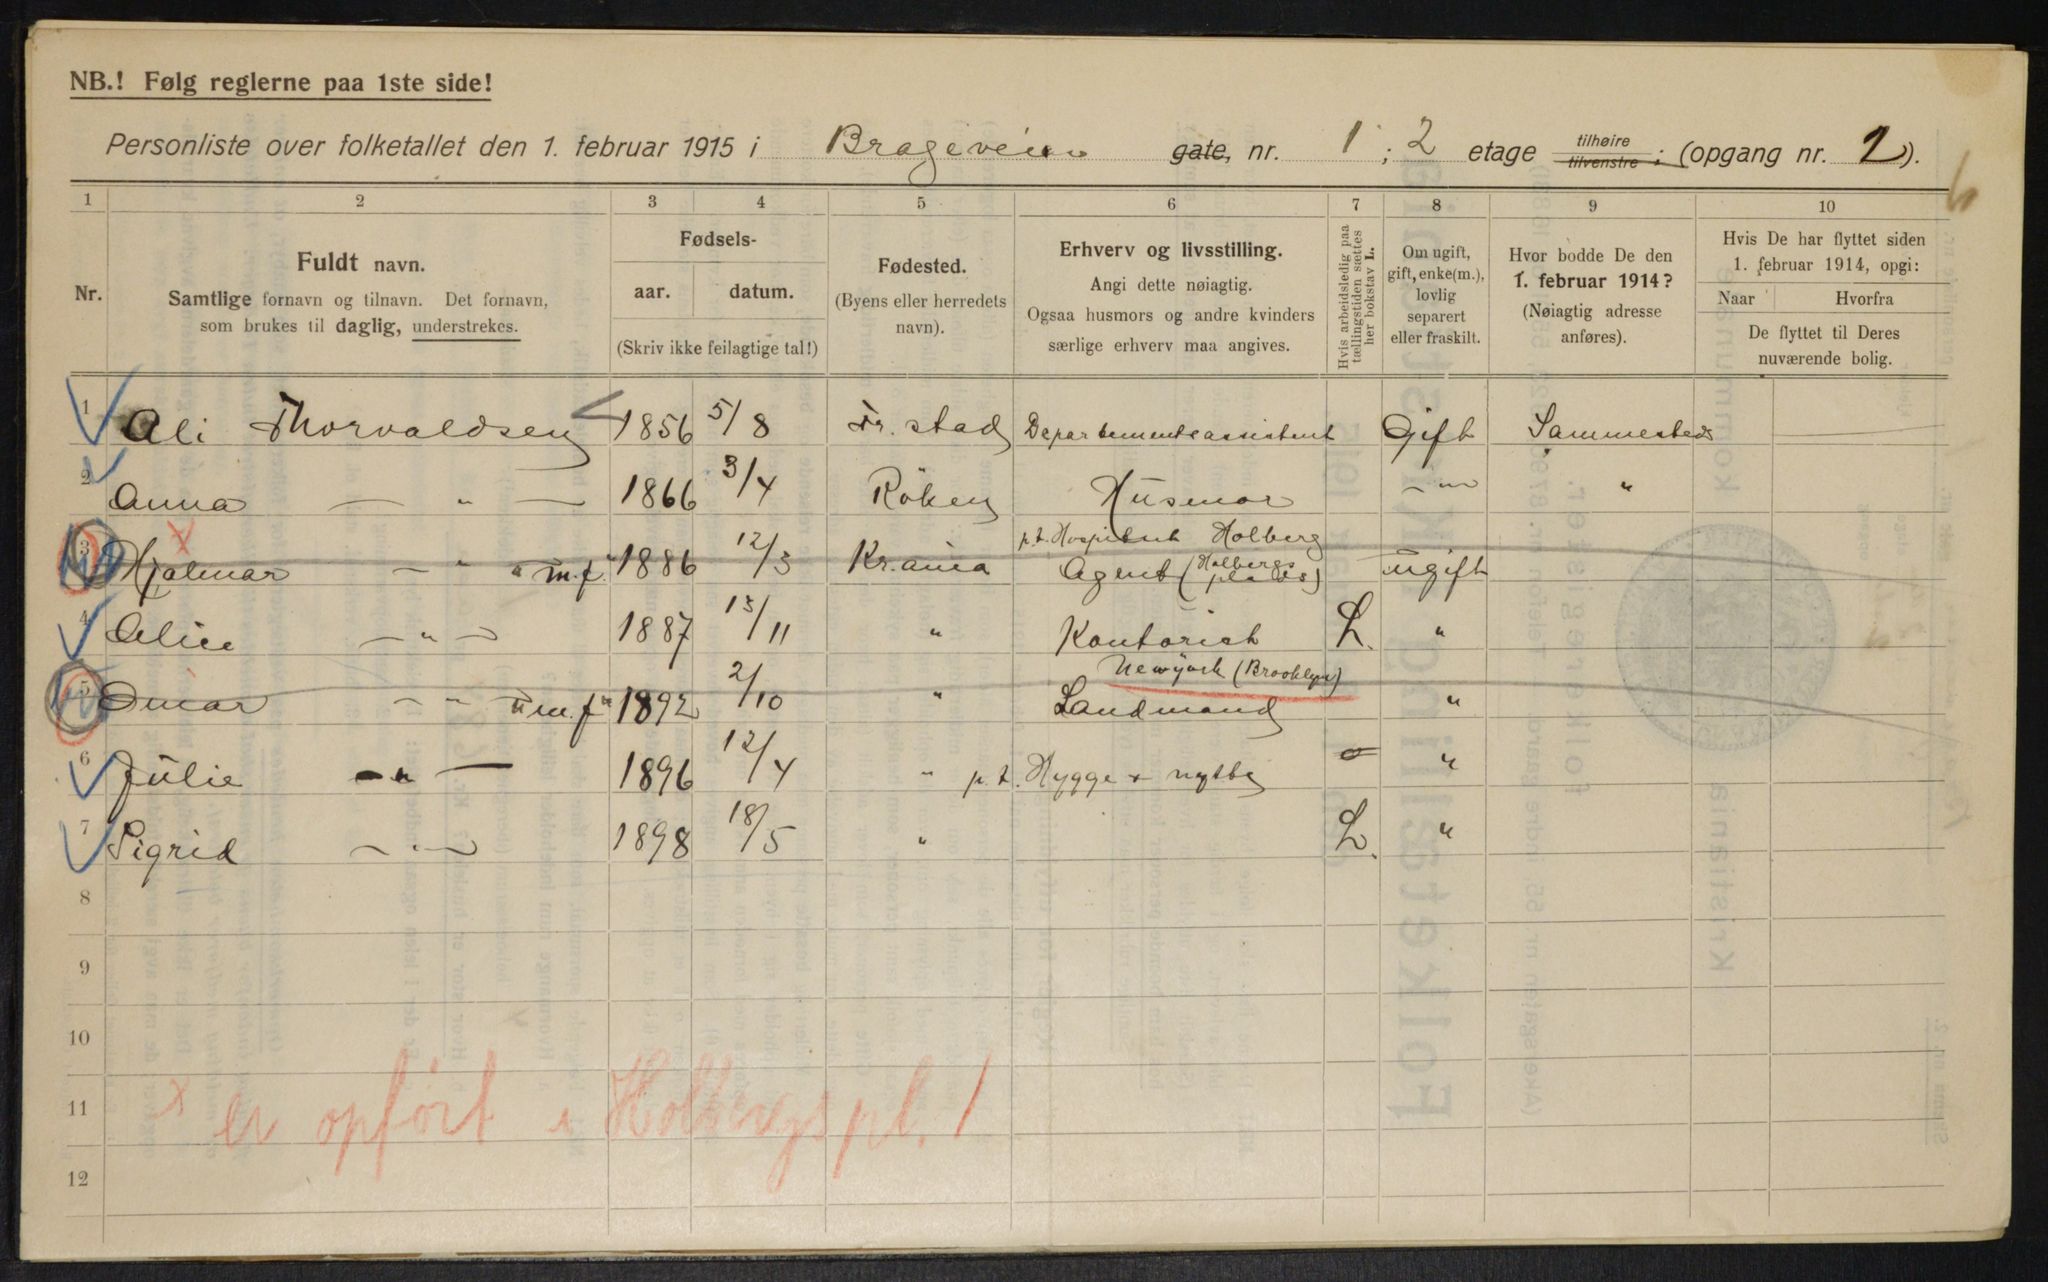 NB.! Følg reglerne paa 1ste side!
Personliste over folketallet den 1. februar 1915 i Brageveien gate, nr. 1 ; 2 etage tilhøire tilvenstre ; (opgang nr. 2).
1 2 3 4 5 6 7 8 9 10
Nr.
Fuldt navn.
Samtlige fornavn og tilnavn. Det fornavn,
som brukes til daglig, understrekes.
Fødsels-
aar. datum.
(Skriv ikke feilagtige tal!)
Fødested.
(Byens eller herredets
navn).
Erhverv og livsstilling.
Angi dette nøiagtig.
Ogsaa husmors og andre kvinders
særlige erhverv maa angives.
Hvis arbeidsledig paa
tællingstiden sættes
her bokstav L.
Om ugift,
gift, enke(m.),
lovlig
separert
eller fraskilt.
Hvor bodde De den
1. februar 1914?
(Nøiagtig adresse
anføres).
Hvis De har flyttet siden
1. februar 1914, opgi:
Naar Hvorfra
De flyttet til Deres
nuværende bolig.
1 Ali Thorvaldsen 1856 5/8 Fr. stad Departementsassistent Gift Sammesteds —
2 Anna — " — 1866 3/4 Röken Husmor — " — "
p.t. Hospitset Holberg
3 Hjalmar — " — "m.f." 1886 12/3 Kr.ania Agent (Holbergs plads) ugift
4 Alice — " — 1887 13/11 " Kontorist L. "
Newyork (Brooklyn)
5 Omar — " — "m.f." 1892 2/10 " Landmand "
6 Julie — " — 1896 12/4 " p.t. Hygge & nytte "
7 Sigrid — " — 1898 18/5 " L. "
8
9
10
11 x er opført i Holbergs pl. 1
12